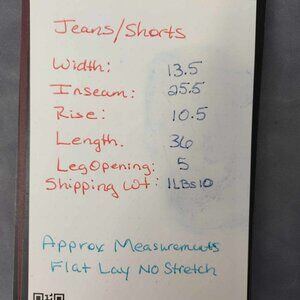 Jeans/Shorts
Width: 13.5
Inseam: 25.5
Rise: 10.5
Length. 36
Leg Opening: 5
Shipping Wt: 1LBS10
Approx Measurements
Flat Lay No Stretch